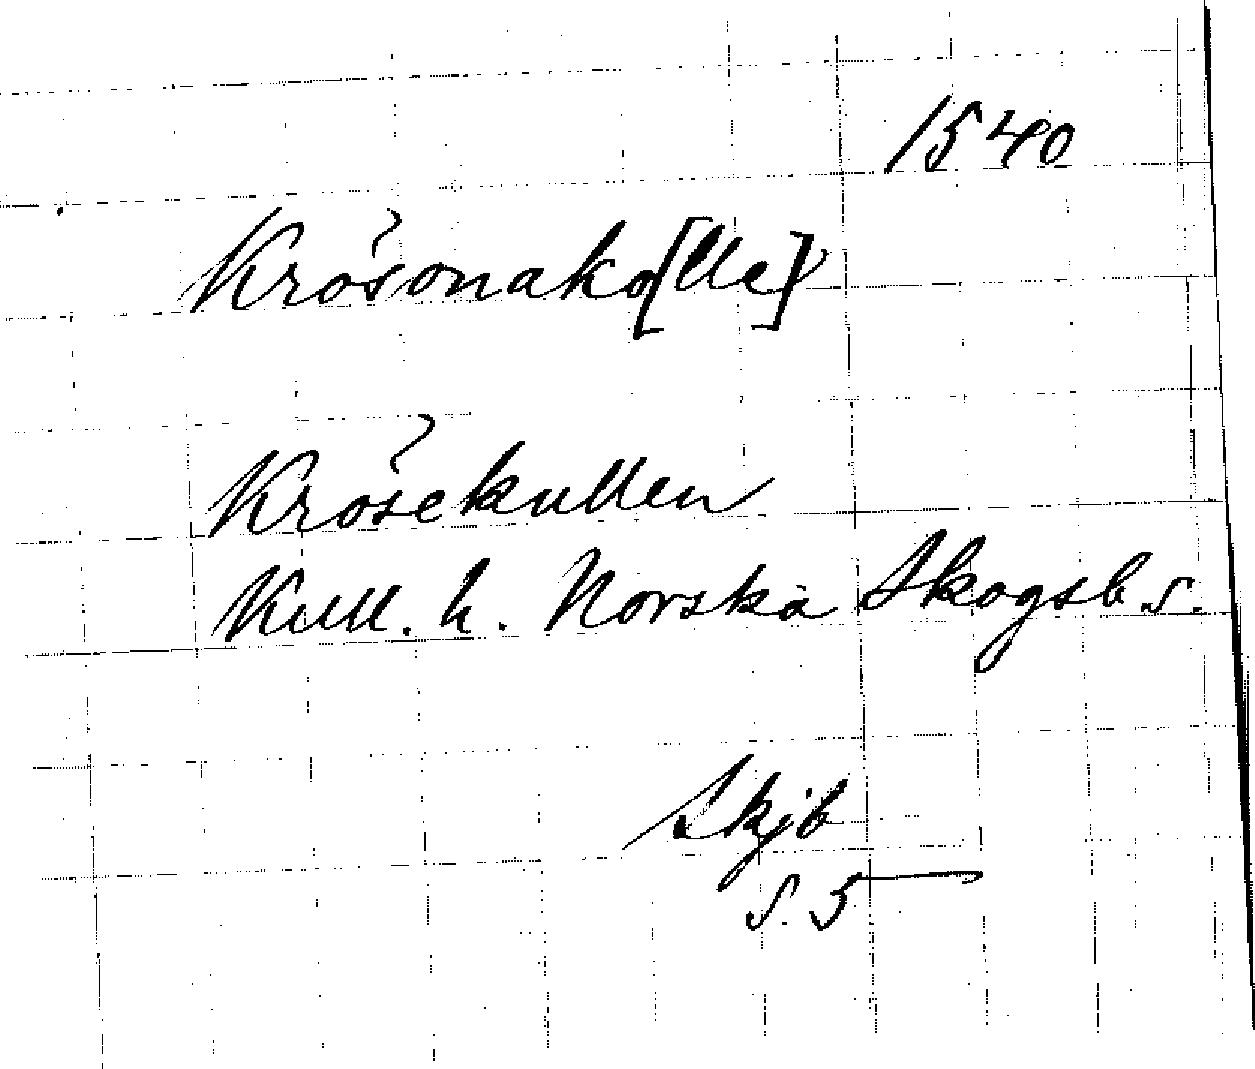 1540
Krösonako[lle]
Krösekullen
Kull. h. Norska Skogsb. s.
Skjb
s. 5